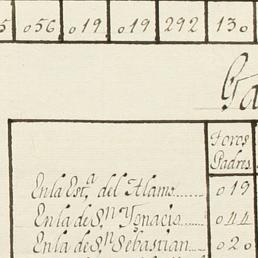 5 056 019 019 292 130
Toros
Padres
En la Est.ª del Alamo...... 019
En la de S.ⁿ Ygnacio...... 044
En la de S.ⁿ Sebastian...... 020